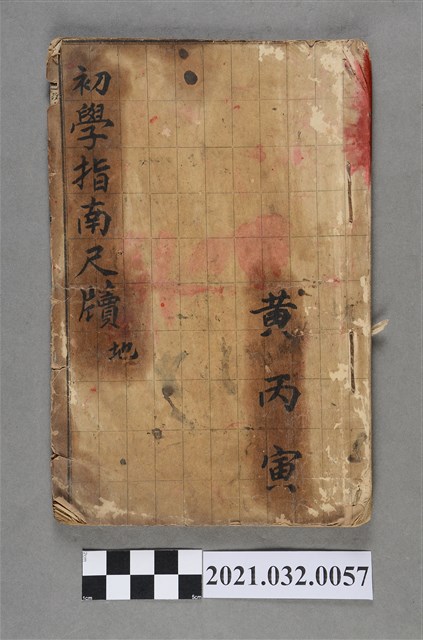 初學指南尺牘
地
黄丙寅
2021.032.0057
5cm